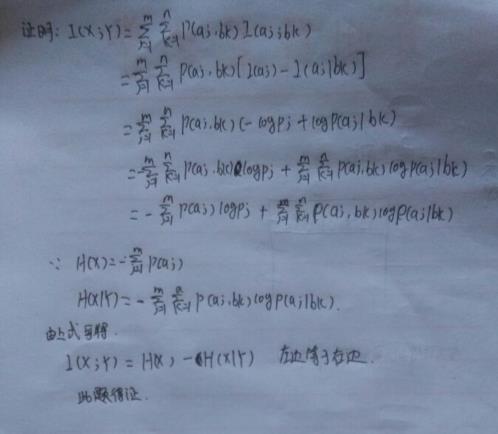 证明: I(X;Y)=∑_{j=1}^{m} ∑_{k=1}^{n} P(aj,bk)I(aj;bk)
=∑_{j=1}^{m} ∑_{k=1}^{n} P(aj,bk)[I(aj)-I(aj|bk)]
=∑_{j=1}^{m} ∑_{k=1}^{n} P(aj,bk)(-logPj+logP(aj|bk)
=-∑_{j=1}^{m} ∑_{k=1}^{n} P(aj,bk)logPj+∑_{j=1}^{m} ∑_{k=1}^{n} P(aj,bk)logP(aj|bk)
=-∑_{j=1}^{m} P(aj)logPj+∑_{j=1}^{m} ∑_{k=1}^{n} P(aj,bk)logP(aj|bk)
∵ H(X)=-∑_{j=1}^{m} P(aj)
H(X|Y)=-∑_{j=1}^{m} ∑_{k=1}^{n} P(aj,bk)logP(aj|bk).
由上式可得.
I(X;Y)=H(X)-H(X|Y) 左边等于右边.
此题得证.